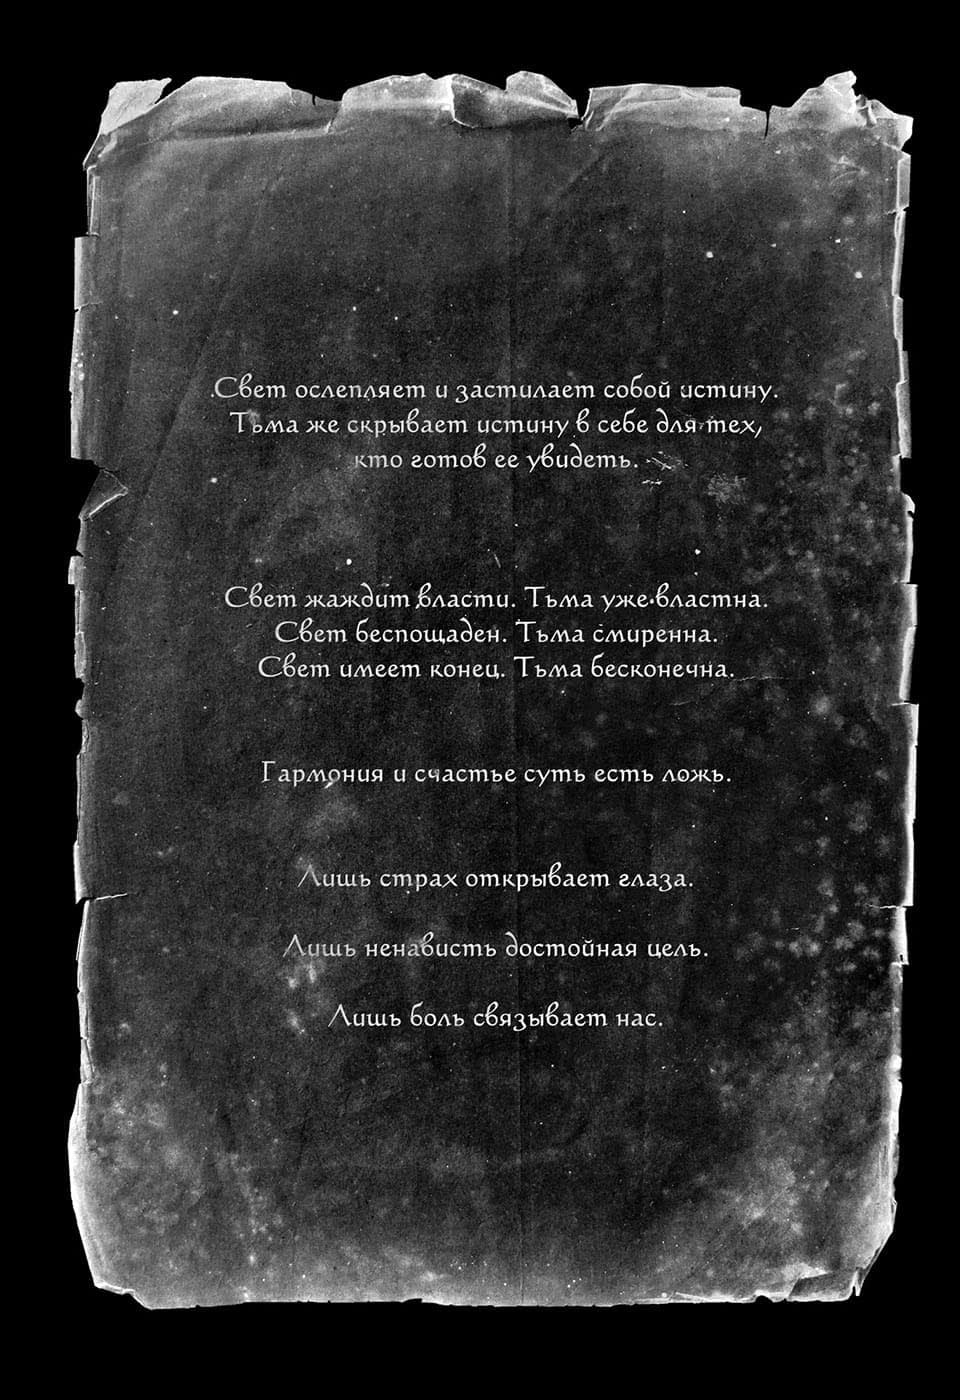 Свет ослепляет и застилает собой истину.
Тьма же скрывает истину в себе для тех,
кто готов ее увидеть.
Свет жаждит власти. Тьма уже властна.
Свет беспощаден. Тьма смиренна.
Свет имеет конец. Тьма бесконечна.
Гармония и счастье суть есть ложь.
Лишь страх открывает глаза.
Лишь ненависть достойная цель.
Лишь боль связывает нас.